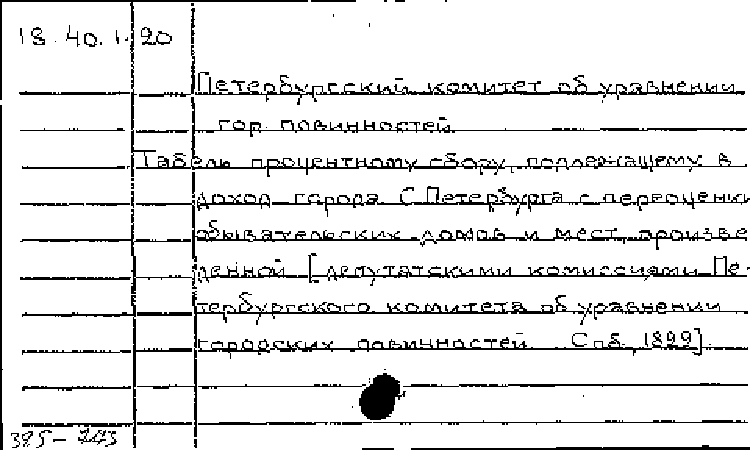 18.40.1.20
Петербургский комитет об уравнении
гор. повинностей.
Табель процентному сбору, подлежащему в
доход города С.Петербурга с переоценки
обывательских домов и мест, произве-
денной [депутатскими комиссиями Пе-
тербургского комитета об уравнении
городских повинностей. Спб, 1829]
385-243